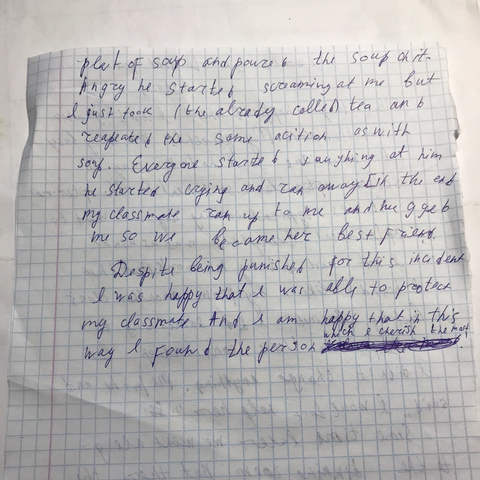 plat of soup and poured the soup on it.
Angry he started screaming at me but
I just took (the already called) tea and
reapeated the same acition as with
soup. Everyone started laughing at him
he started crying and ran away. In the end
my classmate ran up to me and hugged
me so we became her best friend.
Despite being punished for this incident
I was happy that I was able to protect
my classmate. And I am happy that in this
way I found the person which I cherish the most